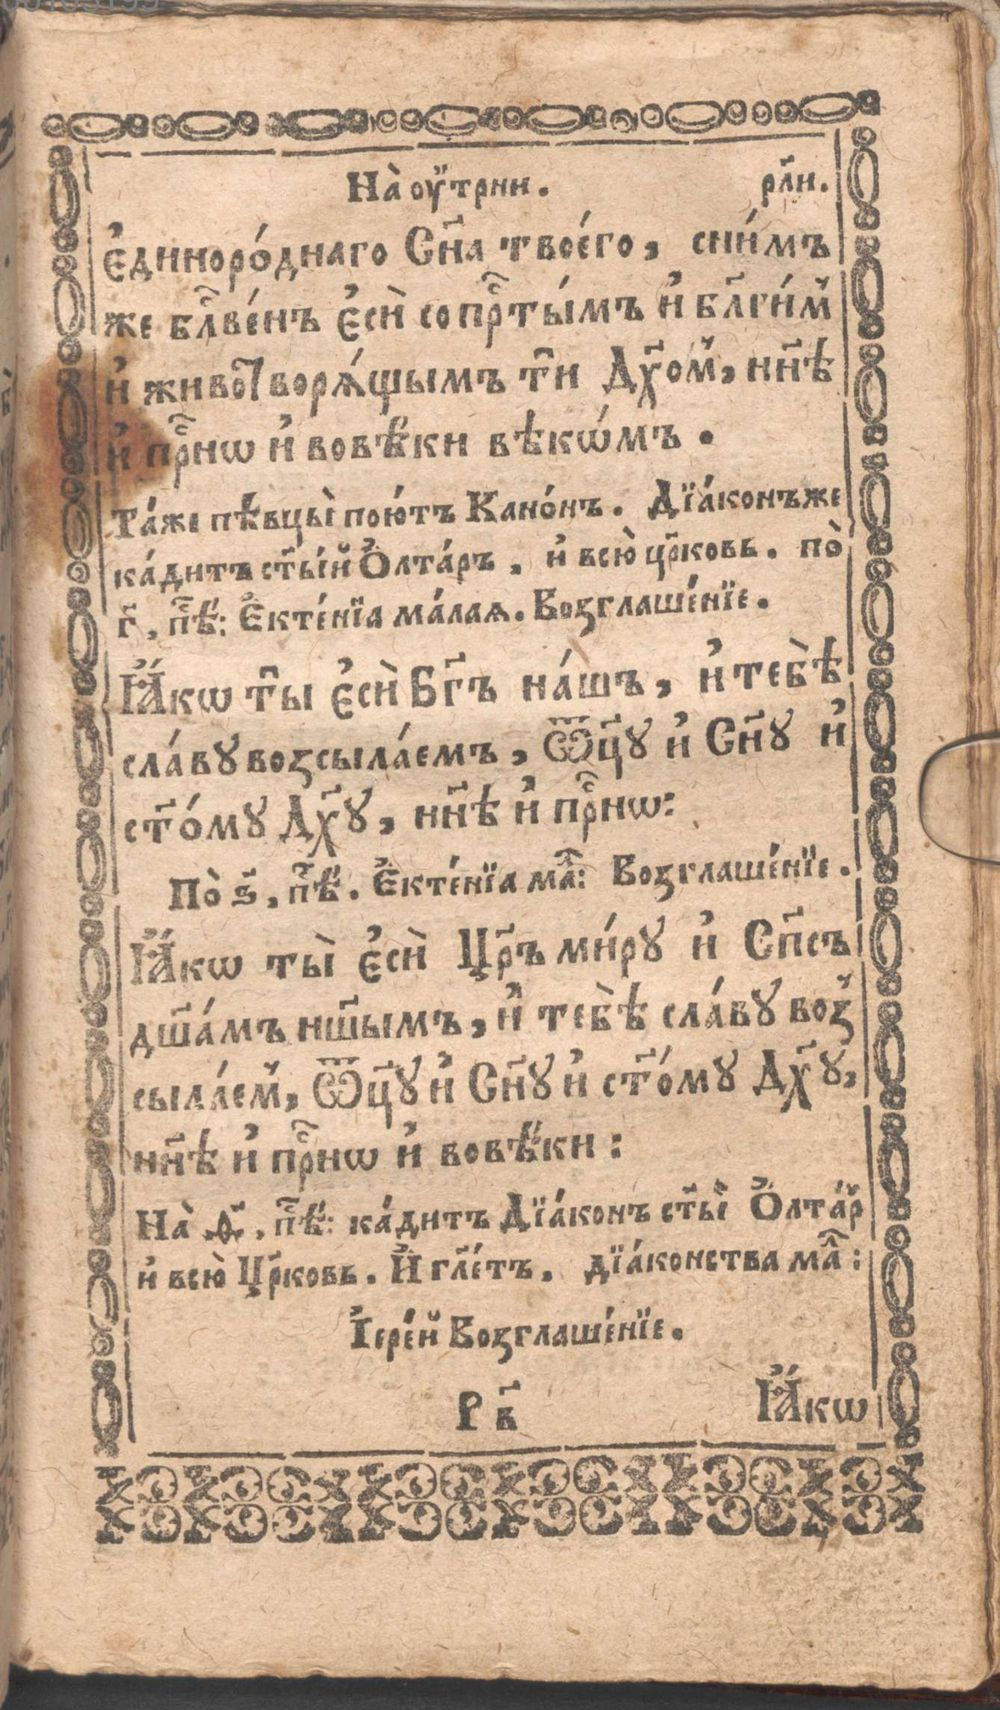 На̀ ѹ҆́трни. рл҃и.
є҆динорѡ́днаго Сн҃а твоегѡ́, сни́мъ
же бл҃ве́нъ є҆сѝ со прⷭ҇ты́мъ и҆ бл҃ги́мⸯ
и҆ живоⷮворѧ́щымъ тⷡ҇и Дх҃омⸯ, нн҃ѣ
и҆ прⷭ҇нѡ и҆ вовѣ́ки вѣкѡ́мъ.
Та́же пѣвцы̀ пою́тъ Кано́нъ. Дїа́конъже
ка́дитъ ст҃ы́й Ѻ҆лта́ръ, и҆ всю̀ цр҃ковь. по̀
г҃, пⷭ҇ѣ: Є҆кте́нїа ма́лаѧ. Возглаше́нїе.
Ꙗ҆́кѡ тⷡ҇ы є҆сѝ Бг҃ъ на́шъ, и҆ тебѣ̀
сла́вꙋ возсыла́емъ, Ѿц҃ꙋ и҆ Сн҃ꙋ и҆
ст҃о́мꙋ Дх҃ꙋ, нн҃ѣ и҆ прⷭ҇нѡ:
По̀ ѕ҃, пⷭ҇ѣ. Є҆кте́нїа маⷧ҇: Возглаше́нїе.
Ꙗ҆́кѡ ты̀ є҆сѝ Цр҃ъ ми́рꙋ и҆ Сп҃съ
дш҃а́мъ нш҃ымъ, и҆ тебѣ̀ сла́вꙋ воз
сыла́емⸯ, Ѿц҃ꙋ и҆ Сн҃ꙋ и҆ ст҃о́мꙋ Дх҃ꙋ,
нн҃ѣ и҆ прⷭ҇нѡ и҆ вовѣ́ки:
На̀ ѳ҃, пⷭ҇ѣ: ка́дитъ Дїа́конъ ст҃ы̀ Ѻ҆лта́рⸯ
и҆ всю̀ Цр҃ковь. И҆ гл҃етъ, дїа́конства маⷧ҇:
І҆ере́й Возглаше́нїе.
Р в҃ Ꙗ҆́кѡ